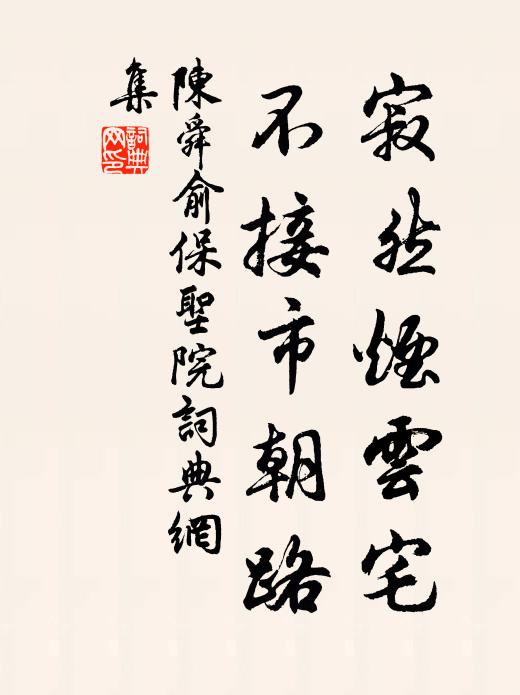 寂然煙雲宅
不接市朝路
陳舜俞保聖院詞典網
集
詞典
网印